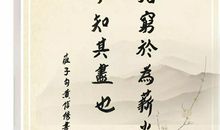 窮於為薪火
知其盡也
莊子句黃信